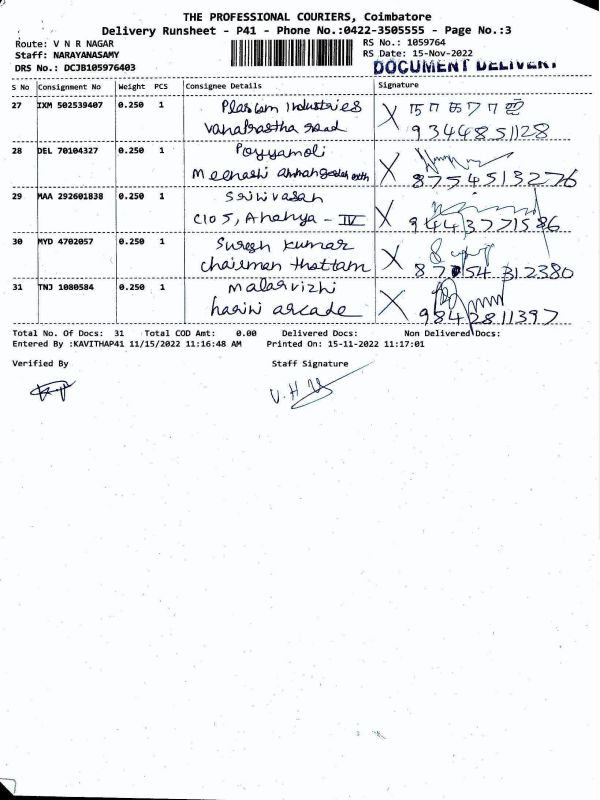 THE PROFESSIONAL COURIERS, Coimbatore
Delivery Runsheet - P41 - Phone No.:0422-3505555 - Page No.:3
Route: V N R NAGAR
RS No.: 1059764
Staff: NARAYANASAMY
RS Date: 15-Nov-2022
DRS No.: DCJB105976403
DOCUMENT DELIVERY
S No Consignment No Weight PCS Consignee Details Signature
27 IXM 502539407 0.250 1 Plastam Industries X நாகராஜ
Vanabrastha road 9344851128
28 DEL 70104327 0.250 1 Poyyamoli X
Meenashi 8754513276
29 MAA 292601838 0.250 1 Srinivasan X
C105, Ananya - IV 9443771586
30 MYD 4702057 0.250 1 Suresh Kumar X
chairman thottam 8754312380
31 TNJ 1080584 0.250 1 malarvizhi X
harini arcade 9842811397
Total No. Of Docs: 31 Total COD Amt: 0.00 Delivered Docs: Non Delivered Docs:
Entered By :KAVITHAP41 11/15/2022 11:16:48 AM Printed On: 15-11-2022 11:17:01
Verified By Staff Signature